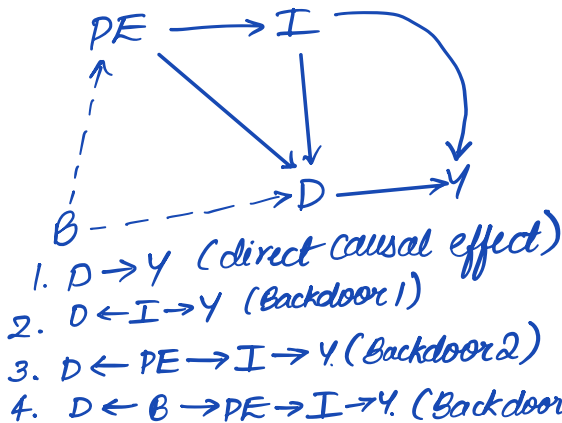 PE → I
D → Y
B
1. D → Y (direct causal effect)
2. D ← I → Y (Backdoor 1)
3. D ← PE → I → Y. (Backdoor 2)
4. D ← B → PE → I → Y. (Backdoor